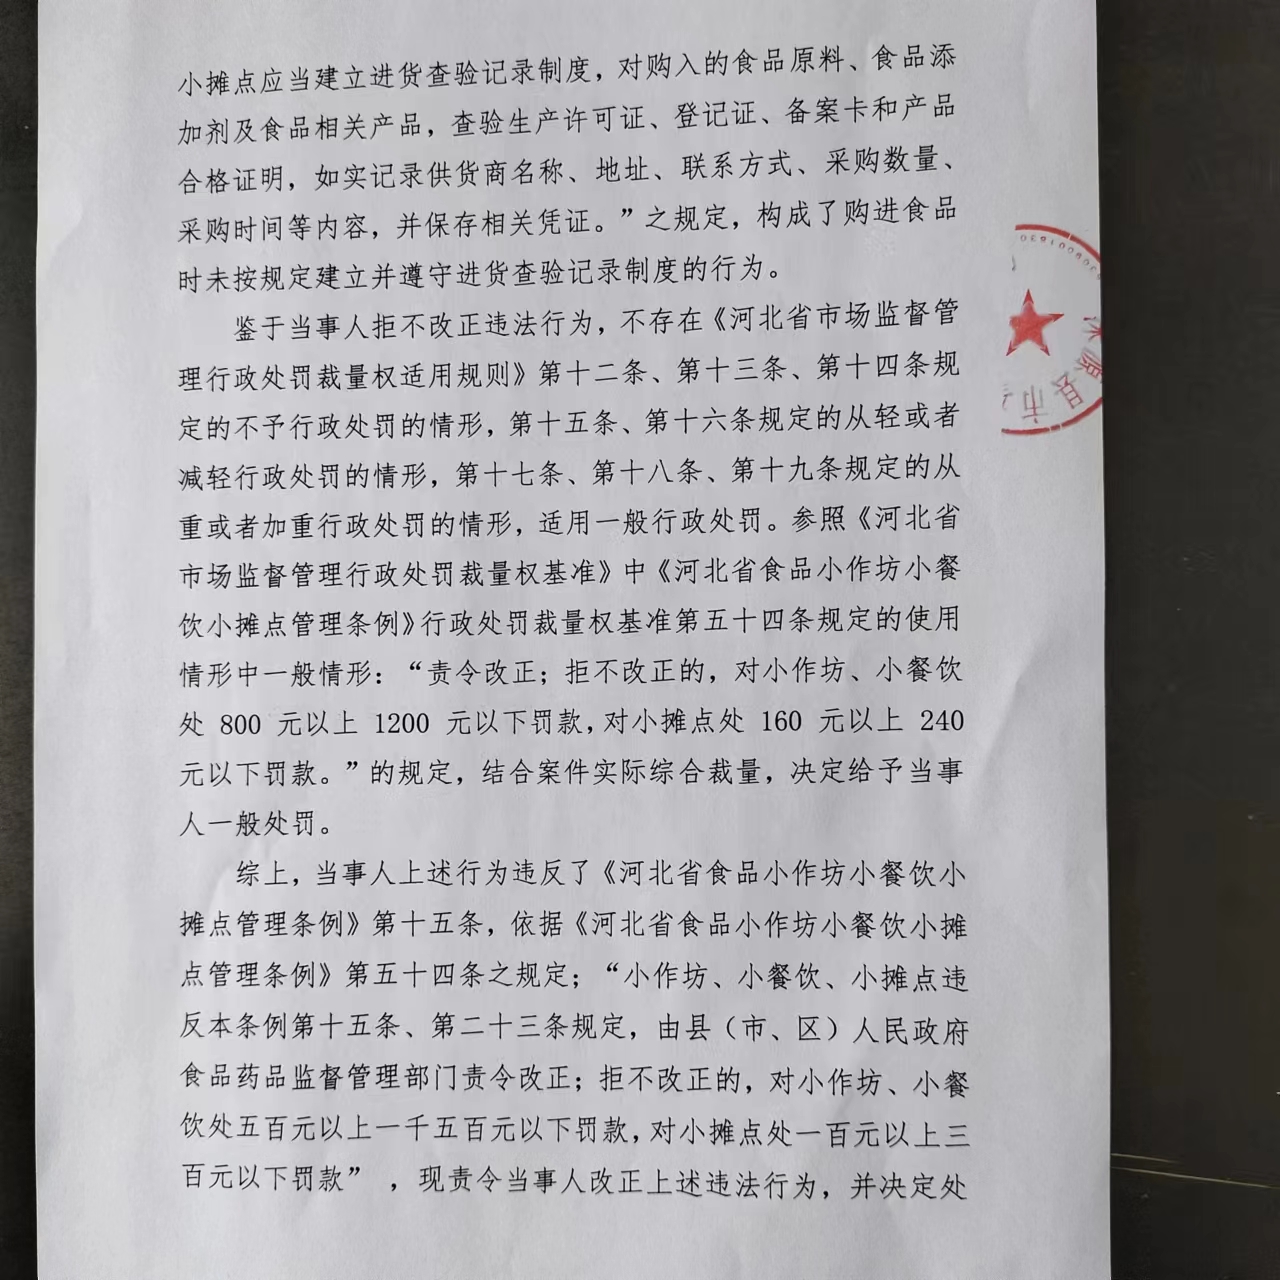 小摊点应当建立进货查验记录制度，对购入的食品原料、食品添
加剂及食品相关产品，查验生产许可证、登记证、备案卡和产品
合格证明，如实记录供货商名称、地址、联系方式、采购数量、
采购时间等内容，并保存相关凭证。”之规定，构成了购进食品
时未按规定建立并遵守进货查验记录制度的行为。
鉴于当事人拒不改正违法行为，不存在《河北省市场监督管
理行政处罚裁量权适用规则》第十二条、第十三条、第十四条规
定的不予行政处罚的情形，第十五条、第十六条规定的从轻或者
减轻行政处罚的情形，第十七条、第十八条、第十九条规定的从
重或者加重行政处罚的情形，适用一般行政处罚。参照《河北省
市场监督管理行政处罚裁量权基准》中《河北省食品小作坊小餐
饮小摊点管理条例》行政处罚裁量权基准第五十四条规定的使用
情形中一般情形：“责令改正；拒不改正的，对小作坊、小餐饮
处 800 元以上 1200 元以下罚款，对小摊点处 160 元以上 240
元以下罚款。”的规定，结合案件实际综合裁量，决定给予当事
人一般处罚。
综上，当事人上述行为违反了《河北省食品小作坊小餐饮小
摊点管理条例》第十五条，依据《河北省食品小作坊小餐饮小摊
点管理条例》第五十四条之规定；“小作坊、小餐饮、小摊点违
反本条例第十五条、第二十三条规定，由县（市、区）人民政府
食品药品监督管理部门责令改正；拒不改正的，对小作坊、小餐
饮处五百元以上一千五百元以下罚款，对小摊点处一百元以上三
百元以下罚款” ，现责令当事人改正上述违法行为，并决定处
源县市